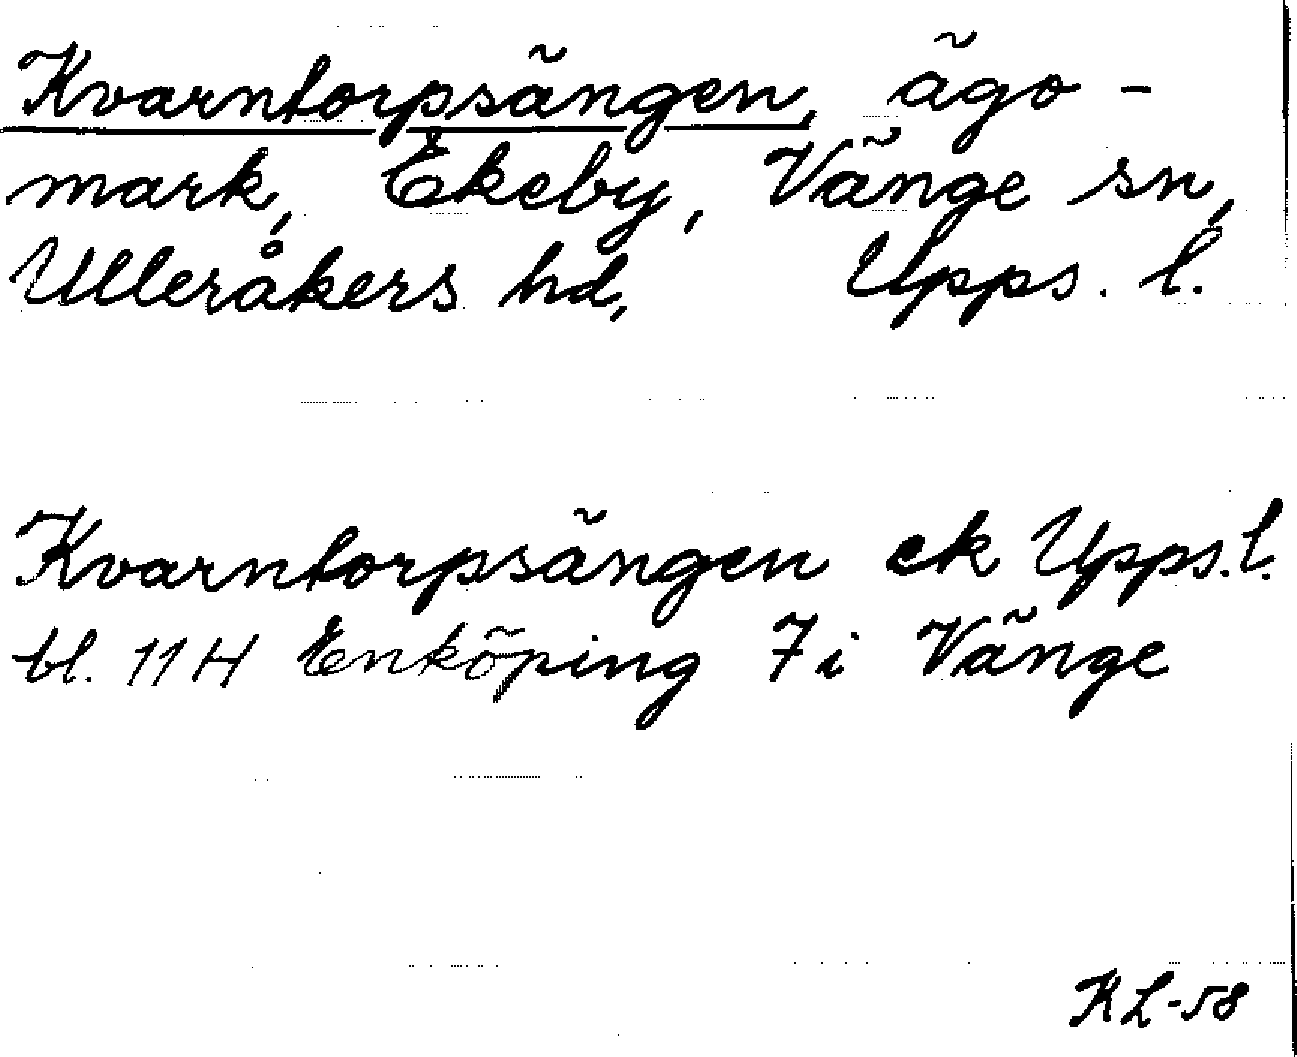 Kvarntorpsängen, ägo-
mark, Ekeby, Vänge sn,
Ulleråkers hd, Upps. l.
Kvarntorpsängen ek Upps. l.
bl. 11 H Enköping 7 i Vänge
KL-58